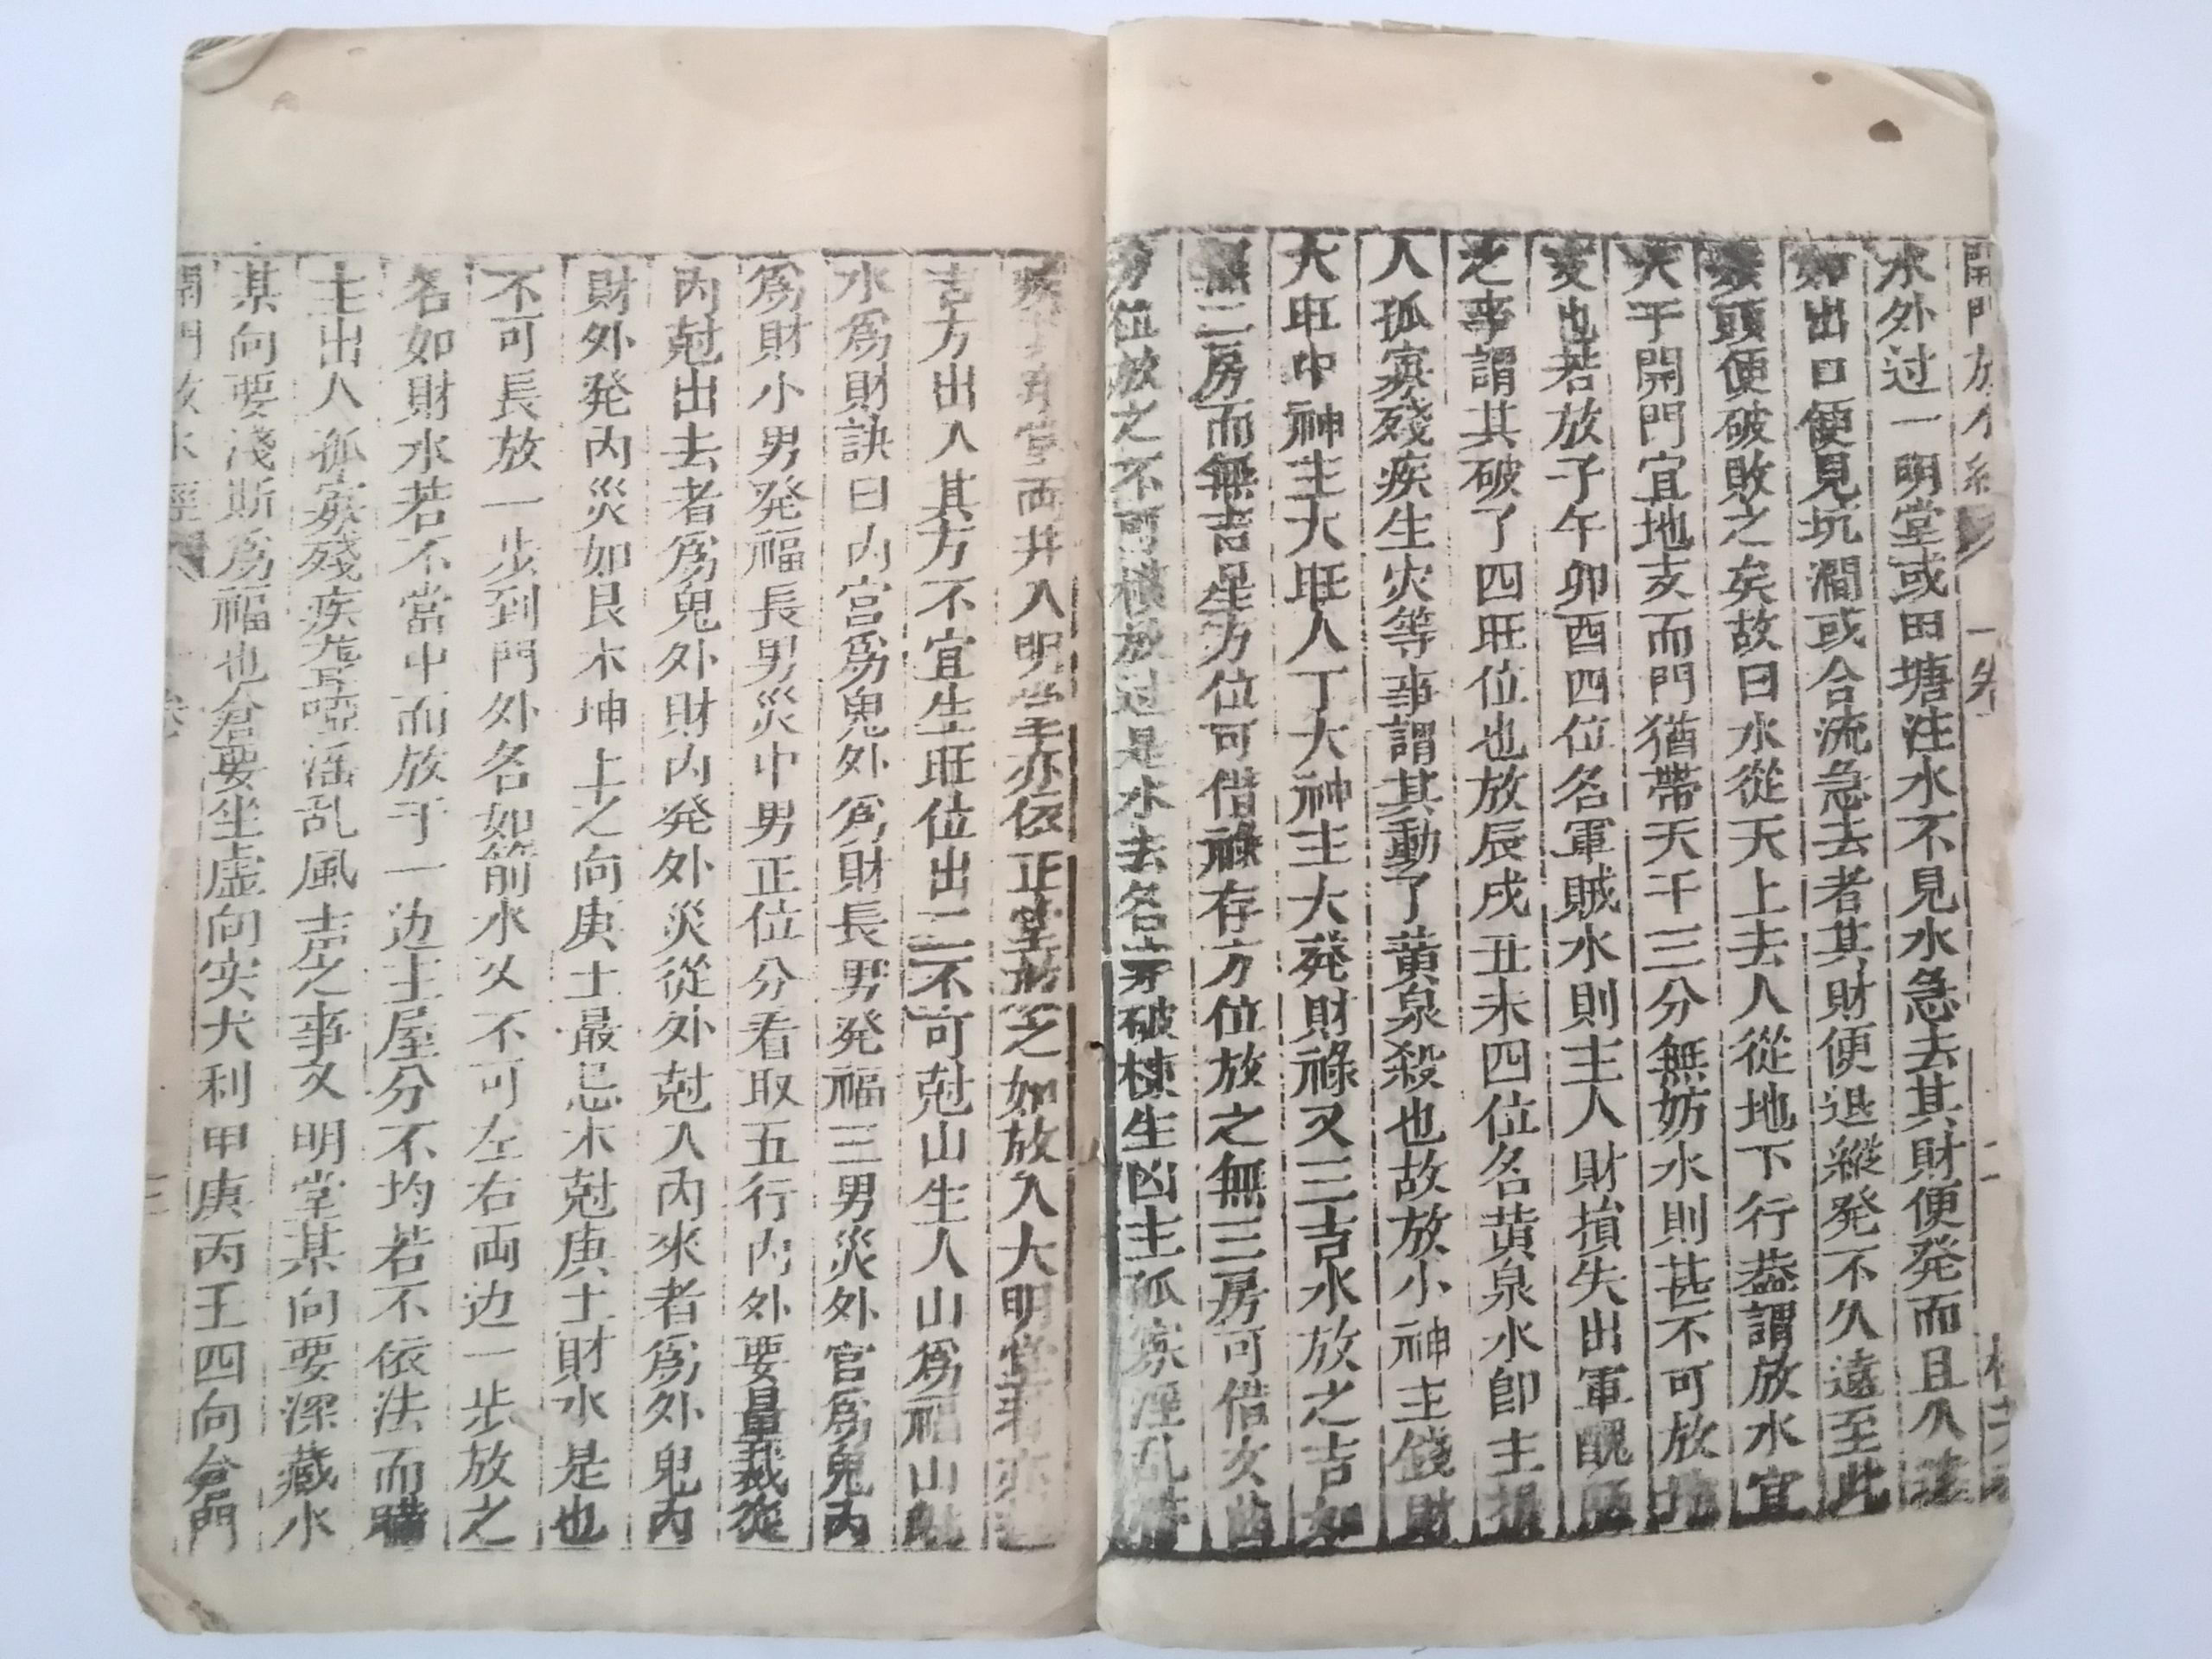 開門放水經 一卷 二
水外过一明堂或田塘注水不見水急去其財便発而且久遠
如出口便見坑澗或合流急去者其財便退縱発不久遠至此
頭便破敗之矣故曰水從天上去人從地下行葢謂放水宜
天干開門宜地支而門猶帶天干三分無妨水則甚不可放地
支也若放子午卯酉四位名軍賊水則主人財損失出軍醜
之事謂其破了四旺位也放辰戌丑未四位名黄泉水卽主損
人孤寡殘疾生灾等事謂其動了黄泉殺也故放小神主錢財
大旺中神主大旺人丁大神主大発財禄又三吉水放之吉如
無二房而無吉星方位可借祿存方位放之無三房可借文曲
方位放之不可横放过是水去名主牙破棟生凶主孤寡淫乱
井堂両井入明堂亦依正堂放之如放入大明堂者亦
吉方出入其方不宜生旺位出二不可尅山生人山爲福山尅
水爲財訣曰内宫爲鬼外爲財長男発福三男災外官爲鬼内
爲財小男発福長男災中男正位分看取五行内外要量裁從
内尅出去者爲鬼外財内発外災從外尅入内來者爲外鬼内
財外発内災如艮木坤土之向庚土最忌木尅庚土財水是也
不可長放一步到門外名如箭水又不可左右両边一步放之
名如財水若不當中而放于一边主屋分不均若不依法而
主出人孤寡殘疾聾啞滛乱風声之事又明堂某向要深藏水
某向要淺斯爲福也倉要坐虚向实大利甲庚丙壬四向倉門
開門放水經 一卷 三